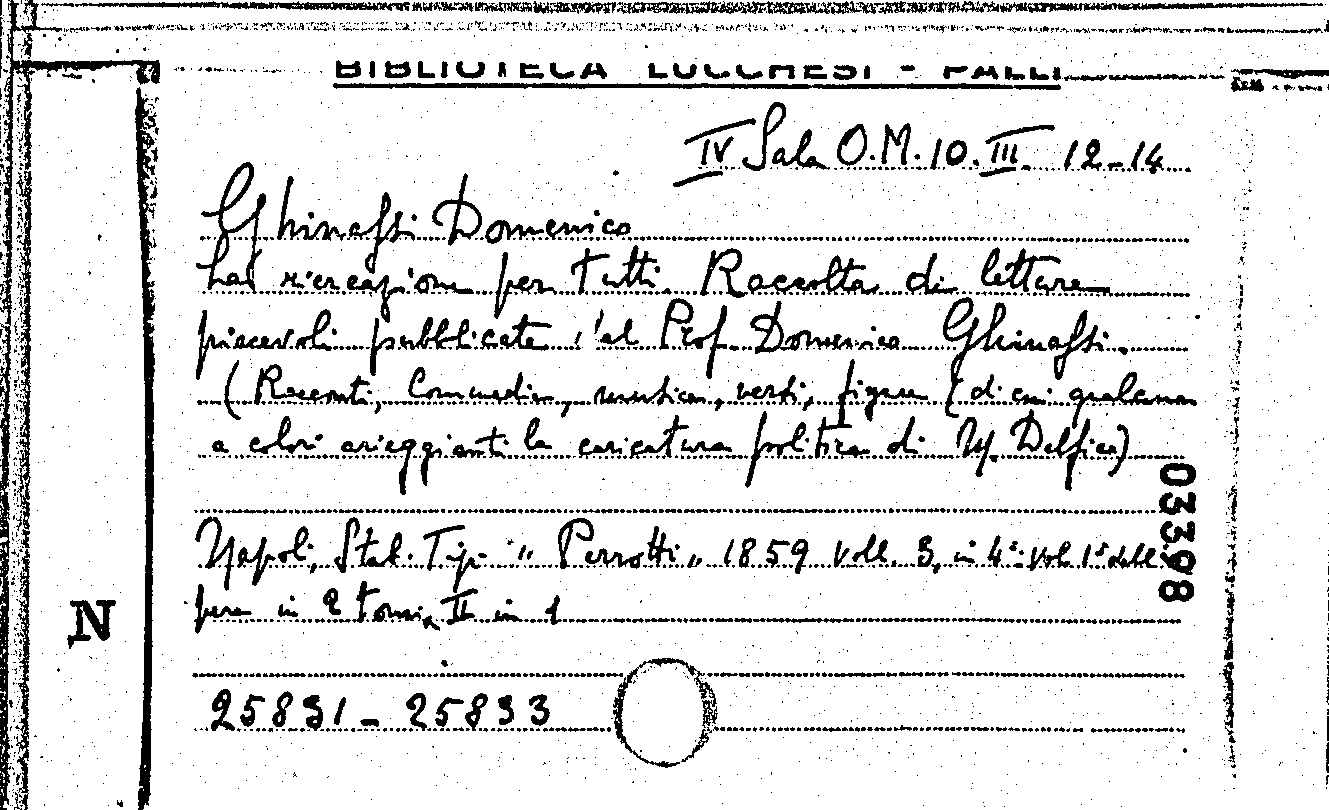 BIBLIOTECA LUCCHESI - PALLI
IV Sala O.M. 10. III. 12-14
Ghinassi Domenico
La ricreazione per tutti. Raccolta di letture
piacevoli pubblicate dal Prof. Domenico Ghinassi.
(Racconti, Commedie, musica, versi, figure (di cui qualcuna
a colori arieggianti la caricatura politica di M. Delfico)
03398
Napoli, Stab. Tip. "Perrotti" 1859 voll. 3, in 4º: vol 1º dell'
pera in 2 tomi, II in 1
N
25831 - 25833